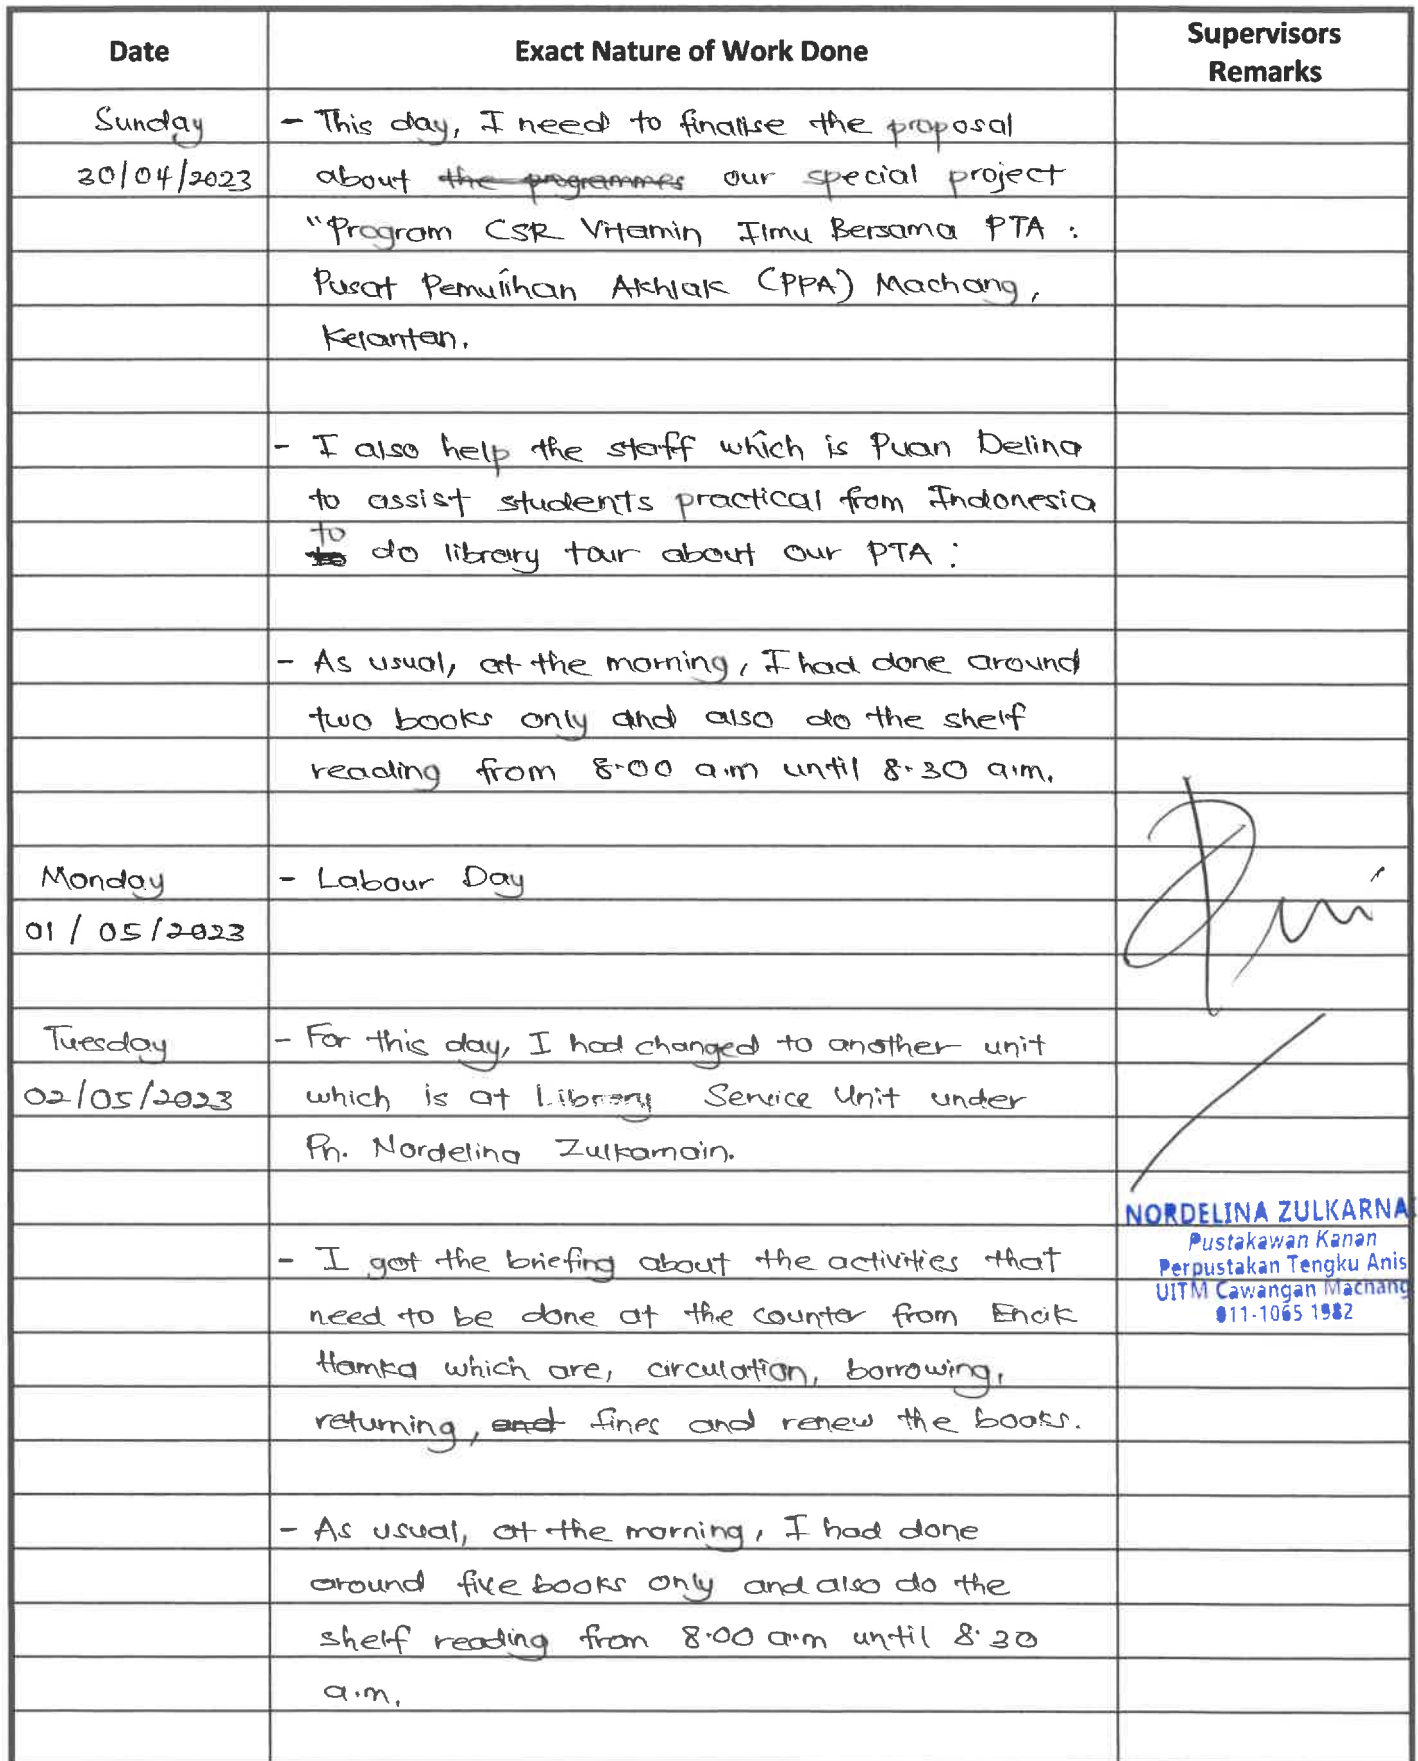 Date Exact Nature of Work Done Supervisors Remarks
Sunday - This day, I need to finalise the proposal
30/04/2023 about the programmes our special project
"Program CSR Vitamin Ilmu Bersama PTA :
Pusat Pemulihan Akhlak (PPA) Machang,
Kelantan.
- I also help the staff which is Puan Delina
to assist students practical from Indonesia
to do library tour about our PTA :
- As usual, at the morning, I had done around
two books only and also do the shelf
reading from 8.00 a.m until 8.30 a.m.
Monday - Labour Day
01 / 05 /2023
Tuesday - For this day, I had changed to another unit
02/05/2023 which is at Library Service Unit under
Pn. Nordelina Zulkarnain.
NORDELINA ZULKARNAI
Pustakawan Kanan
Perpustakan Tengku Anis
UITM Cawangan Machang
011-1065 1982
- I got the briefing about the activities that
need to be done at the counter from Encik
Hamka which are, circulation, borrowing,
returning, and fines and renew the books.
- As usual, at the morning, I had done
around five books only and also do the
shelf reading from 8.00 a.m until 8.30
a.m.